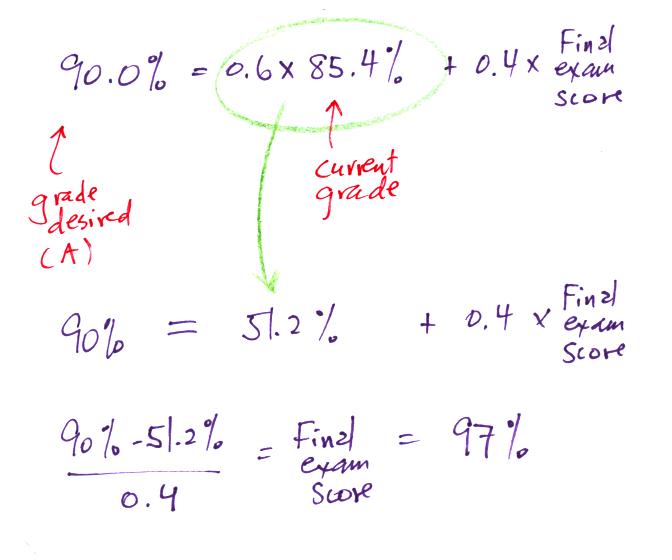 90.0% = 0.6 x 85.4% + 0.4 x Final exam score
grade desired (A)
current grade
90% = 51.2% + 0.4 x Final exam score
90% - 51.2% / 0.4 = Final exam score = 97%